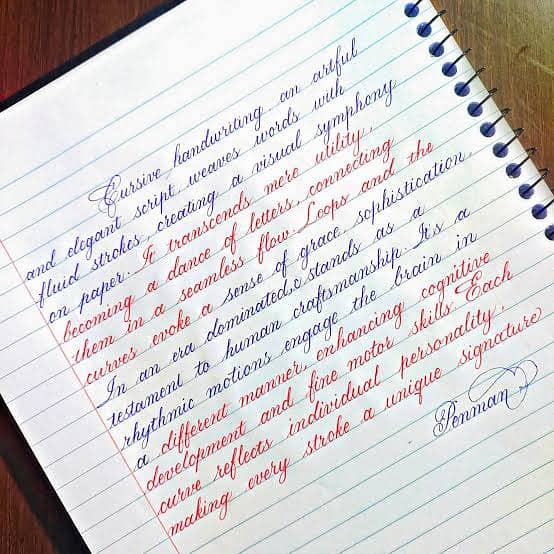 Cursive handwriting, an artful
and elegant script, weaves words with
fluid strokes, creating a visual symphony
on paper. It transcends mere utility,
becoming a dance of letters, connecting
them in a seamless flow. Loops and the
curves evoke a sense of grace, sophistication,
In an era dominated, stands as a
testament to human craftsmanship. It's a
rhythmic motions engage the brain in
a different manner, enhancing cognitive
development and fine motor skills. Each
curve reflects individual personality,
making every stroke a unique signature
Penman